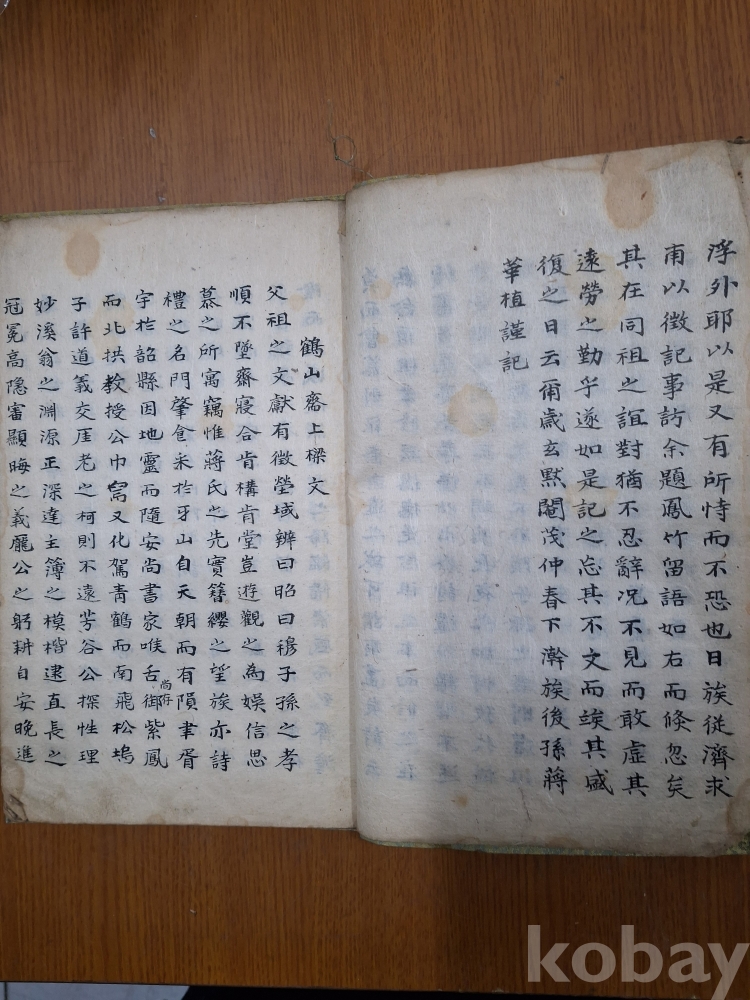 浮外耶以是又有所恃而不恐也日族從濟求
甫以徵記事訪余題鳳竹留語如右而倐忽矣
其在同祖之誼對猶不忍辭况不見而敢虛其
遠勞之勤乎遂如是記之忘其不文而竢其盛
復之日云爾歲玄黙閹茂仲春下澣族後孫蔣
華植謹記
鶴山齋上樑文
父祖之文獻有徵塋域辨曰昭曰穆子孫之孝
順不墜齋寢合肯構肯堂豈遊觀之為娛信思
慕之所寓竊惟蔣氏之先實簮纓之望族亦詩
禮之名門肇食采於牙山自天朝而有隕聿胥
宇於韶縣因地靈而隨安尚書家喉舌御紫鳳
尚府
而北拱教授公巾又化駕青鶴而南飛松塢
子許道義交厓老之柯則不遠芳谷公探性理
妙溪翁之淵源正深達主簿之模楷逮直長之
冠冕高隐審顯晦之義龐公之躬耕自安晚進
kobay